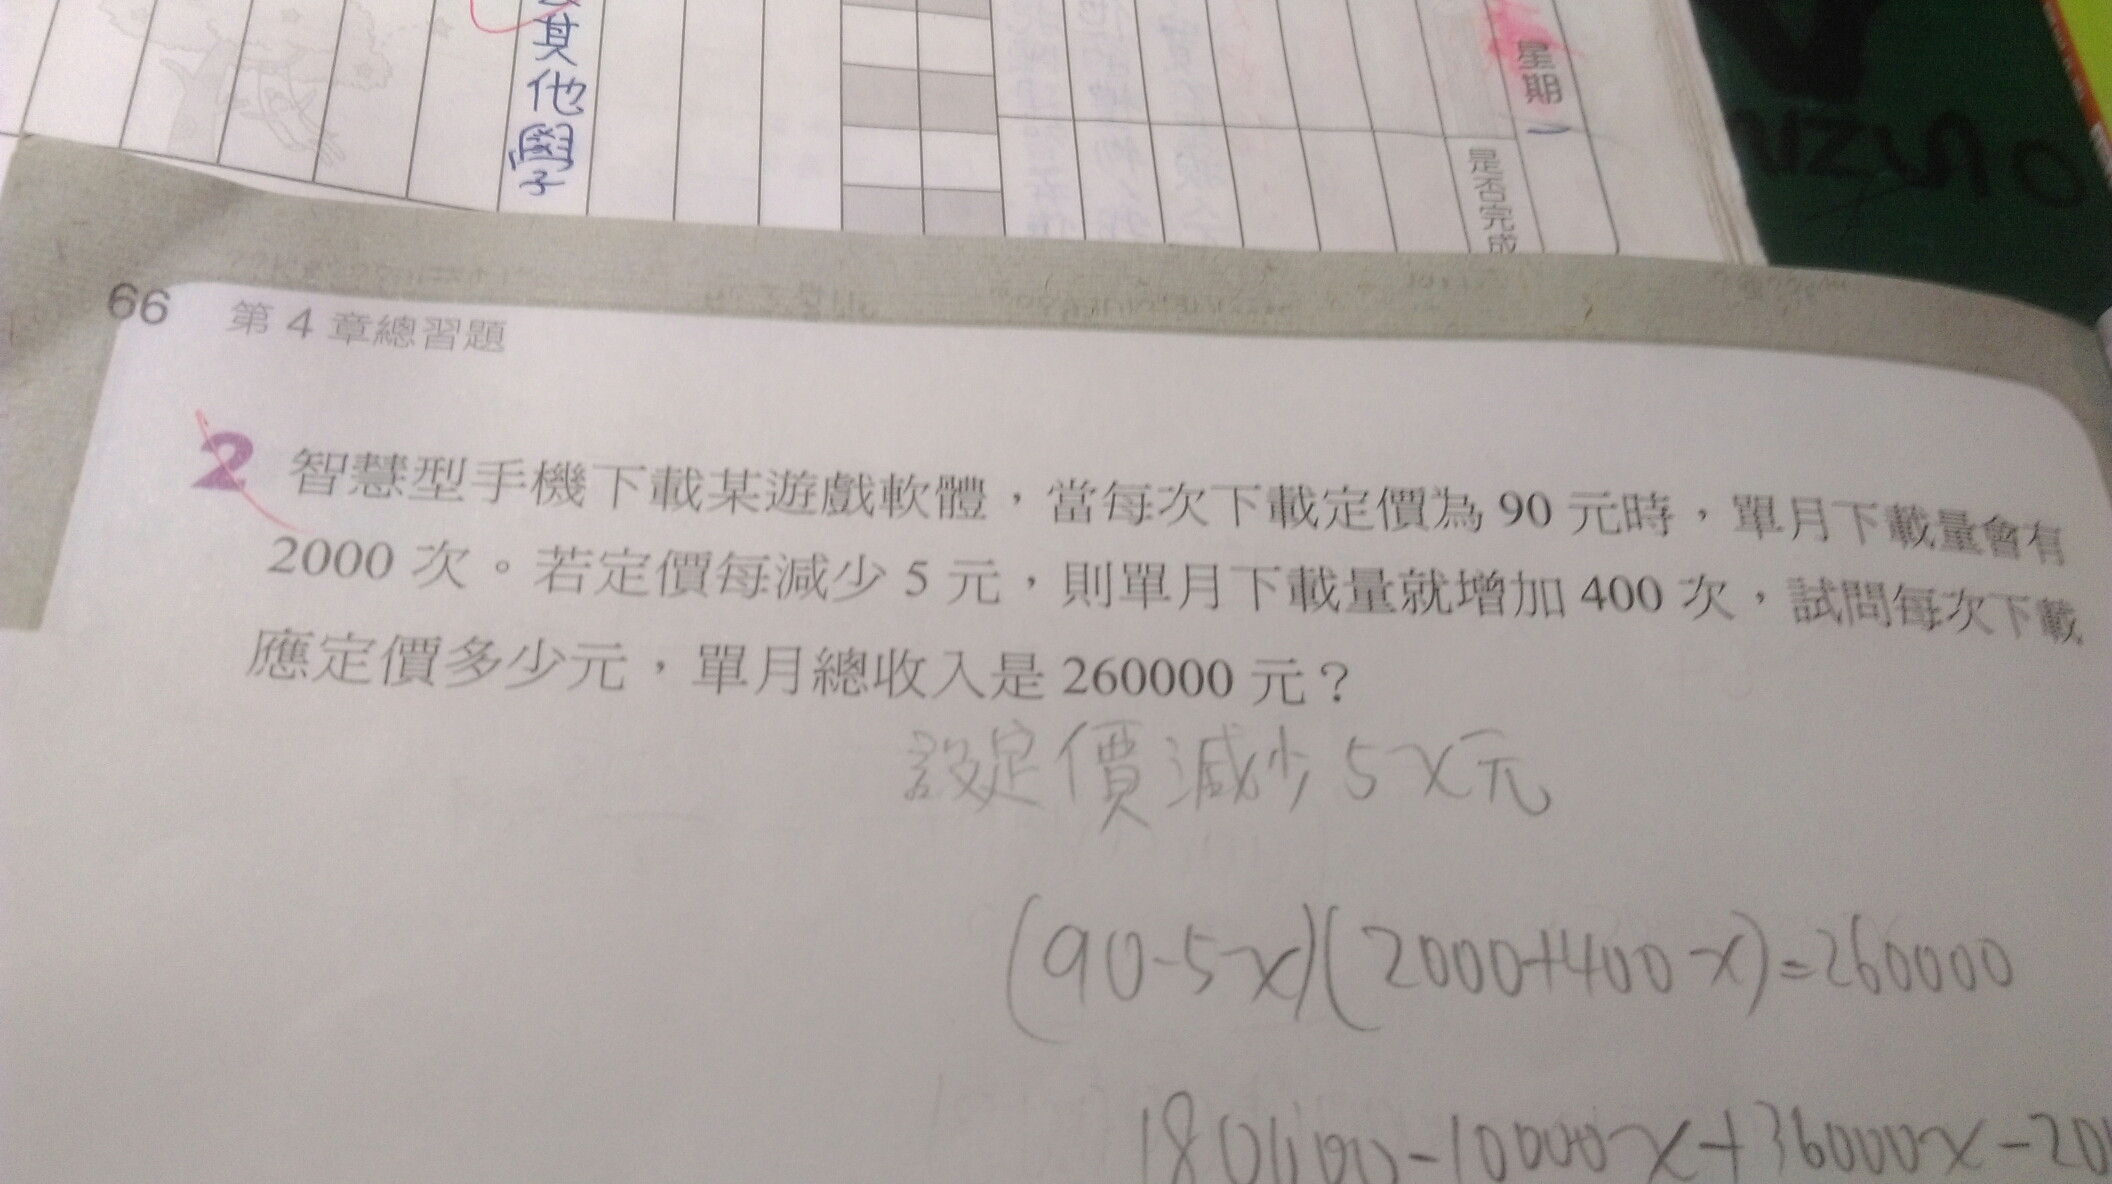 其他學子
星期一
是否完成
66 第4章總習題
2 智慧型手機下載某遊戲軟體，當每次下載定價為90元時，單月下載量會有
2000次。若定價每減少5元，則單月下載量就增加400次，試問每次下載
應定價多少元，單月總收入是260000元？
設定價減少5x元
(90-5x)(2000+400x)=260000
180000-10000x+36000x-20